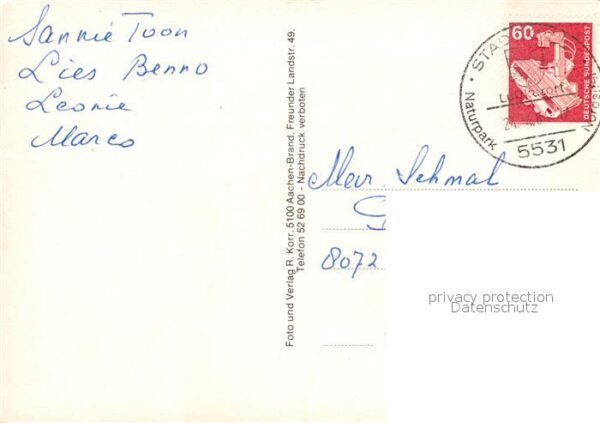 Sannie Toon
Lies Benno
Leonie
Marco
Foto und Verlag R. Korr, 5100 Aachen-Brand, Freunder Landstr. 49,
Telefon 52 69 00 - Nachdruck verboten
60
DEUTSCHE BUNDESPOST
Naturpark
5531
Mar. Schmal
8072
privacy protection
Datenschutz